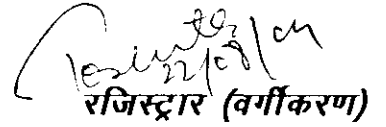 22/08/04
रजिस्ट्रार (वर्गीकरण)